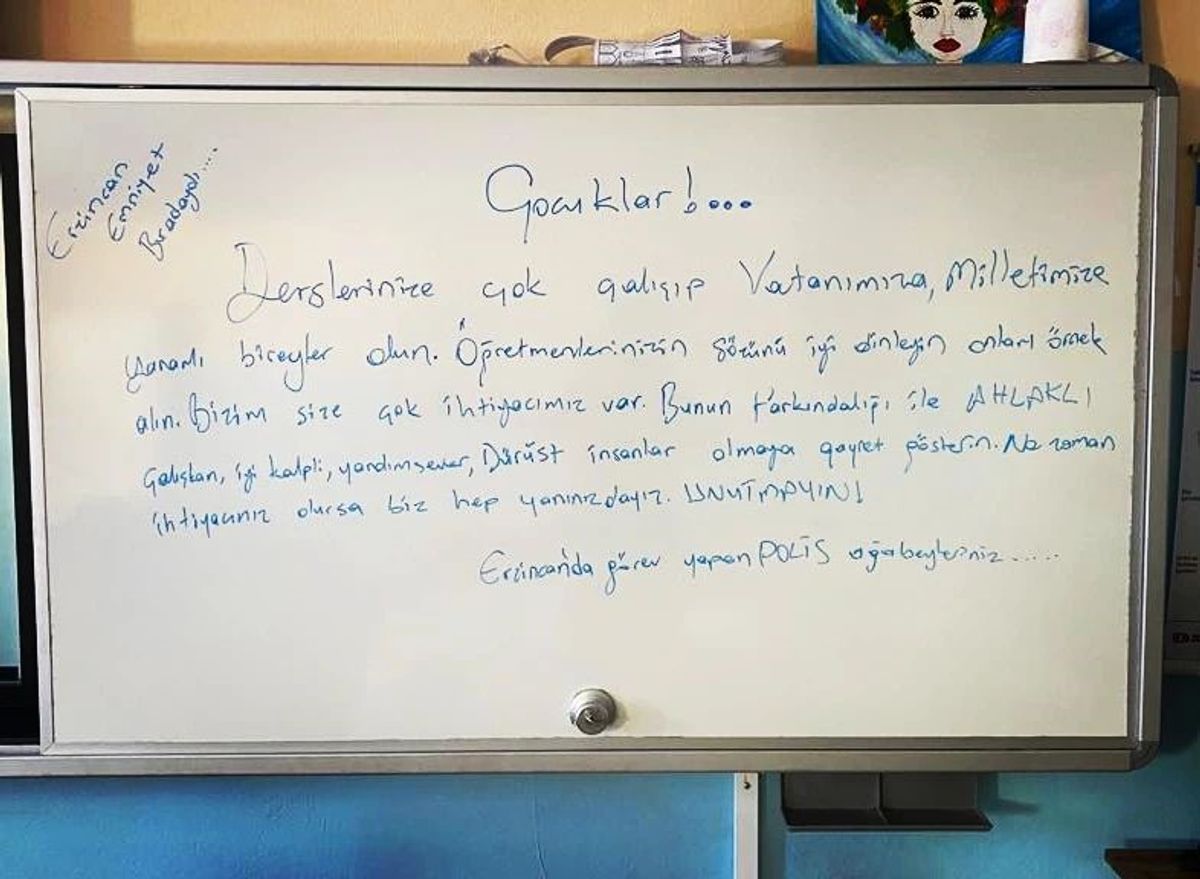 Erzincan
Emniyet
Buradaydı....
Çocuklar!...
Derslerinize çok çalışıp Vatanımıza, Milletimize
yararlı bireyler olun. Öğretmenlerinizin sözünü iyi dinleyin onları örnek
alın. Bizim size çok ihtiyacımız var. Bunun farkındalığı ile AHLAKLI
Çalışkan, iyi kalpli, yardımsever, Dürüst insanlar olmaya gayret gösterin. Ne zaman
ihtiyacınız olursa biz hep yanınızdayız. UNUTMAYIN!
Erzincan'da görev yapan POLİS ağabeyleriniz.....